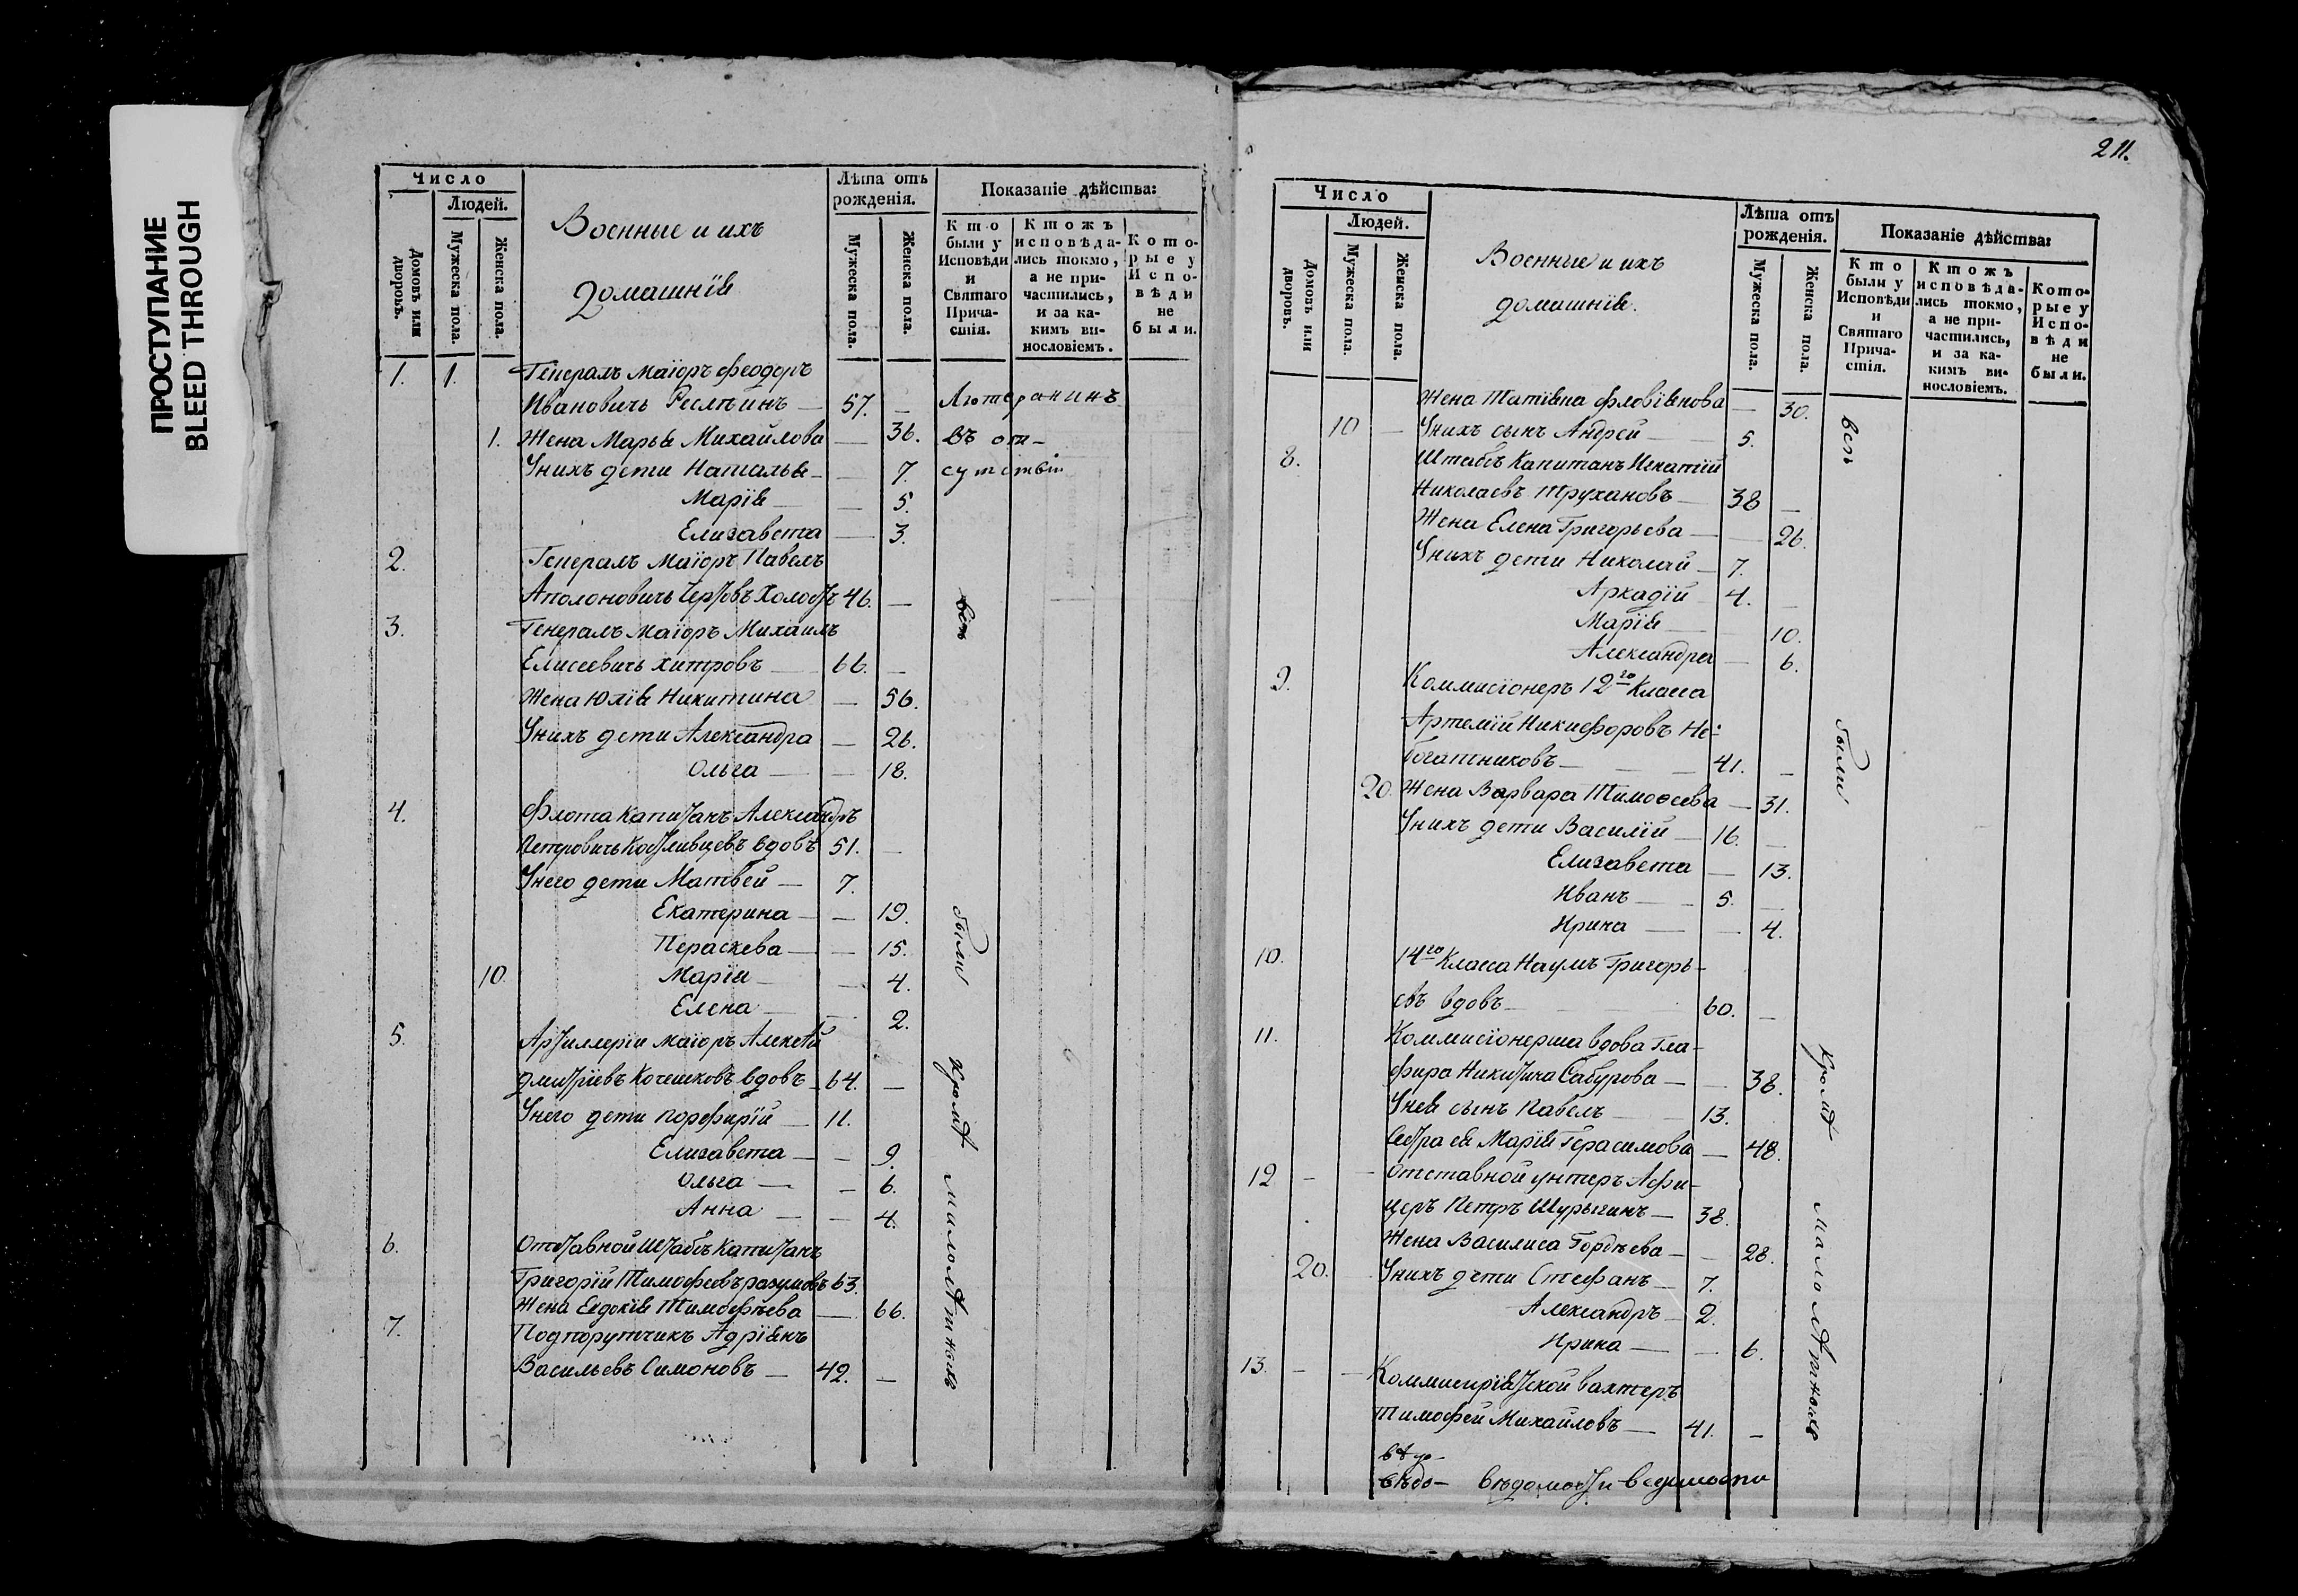 ПРОСТУПАНИЕ
BLEED THROUGH
Число
Людей.
Домовъ или дворовъ.
Мужеска пола.
Женска пола.
Военные и ихъ
домашнія
Лѣта отъ
рожденія.
Мужеска пола.
Женска пола.
Показаніе дѣйства:
Кто
были у
Исповѣди
и
Святаго
Прича-
стія.
Ктожъ
исповѣда-
лись токмо,
а не при-
частились,
и за ка-
кимъ ви-
нословіемъ.
Кото-
рые у
Испо-
вѣди
не
были.
1. 1. Генералъ Маіоръ Феодоръ
Ивановичь — 57. — Лютеранинъ
1. Жена Марья Михайлова — 36. въ от-
У нихъ дети Наталья — — 7. сутствіи
Марія — — 5.
Елизавета — 3.
2. Генералъ Маіоръ Павелъ
Аполоновичь Холостъ 46. —
3. Генералъ Маіоръ Михаилъ
Елисеевичь Хитровъ — 66. —
Жена Юлія Никитина — 56.
У нихъ дети Александра — 26.
Ольга — — 18.
4. Флота Капитанъ Александръ
Петровичь Костливцевъ вдовъ 51. —
У него дети Матвей — 7.
Екатерина — — 19.
Пераскева — — 15.
10. Марія — — 4.
Елена — 2.
5. Артиллеріи маіоръ Алексей
Дмитріевъ Кочешковъ вдовъ — 64. —
У него дети Порфирій — 11.
Елизавета — — 9.
Ольга — — 6.
Анна — — 4.
6. Отставной Штабсъ Капитанъ
Григорій Тимофеевъ разумовъ 63.
Жена Евдокія Тимофѣева — 66.
7. Подпорутчикъ Адріянъ
Васильевъ Симоновъ — 42. —
всѣ
были
кромѣ
малолѣтныхъ
211.
Число
Людей.
Домовъ или дворовъ.
Мужеска пола.
Женска пола.
Военные и ихъ
домашнія.
Лѣта отъ
рожденія.
Мужеска пола.
Женска пола.
Показаніе дѣйства:
Кто
были у
Исповѣди
и
Святаго
Прича-
стія.
Ктожъ
исповѣда-
лись токмо,
а не при-
частились,
и за ка-
кимъ ви-
нословіемъ.
Кото-
рые у
Испо-
вѣди
не
были.
Жена Татіяна Флавіянова — 30.
10 — У нихъ сынъ Андрей — 5.
8. Штабсъ Капитанъ Игнатій
Николаевъ Трухановъ — 38 —
Жена Елена Григорьева — — 26.
У нихъ дети Николай — 7.
Аркадій 4. —
Марія — 10.
Александра — 6.
9. Коммисіонеръ 12го Класса
Артемій Никифоровъ Не-
богатиковъ — — — 41. —
20. Жена Варвара Тимоѳеева — 31.
У нихъ дети Василій — 16. —
Елизавета — 13.
Иванъ — — 5. —
Ирина — — 4.
10. 14го Класса Наумъ Григорь-
евъ вдовъ — 60. —
11. Коммисіонерша вдова Гла-
фира Никитина Сабурова — — 38.
У нея сынъ Павелъ — 13.
Сестра ея Марія Герасимова — 48.
12 — — Отставной унтеръ Афи-
церъ Петръ Шурыгинъ — 38.
Жена Василиса Гордѣева — — 28.
20. У нихъ дети Стефанъ — 7.
Александръ — 2.
Ирина — — 6.
13. — — Коммисаріятской вахтеръ
Тимофей Михайловъ — 41. —
всѣ
были
кромѣ
малолѣтныхъ
вѣдо- вѣдомости ведомости